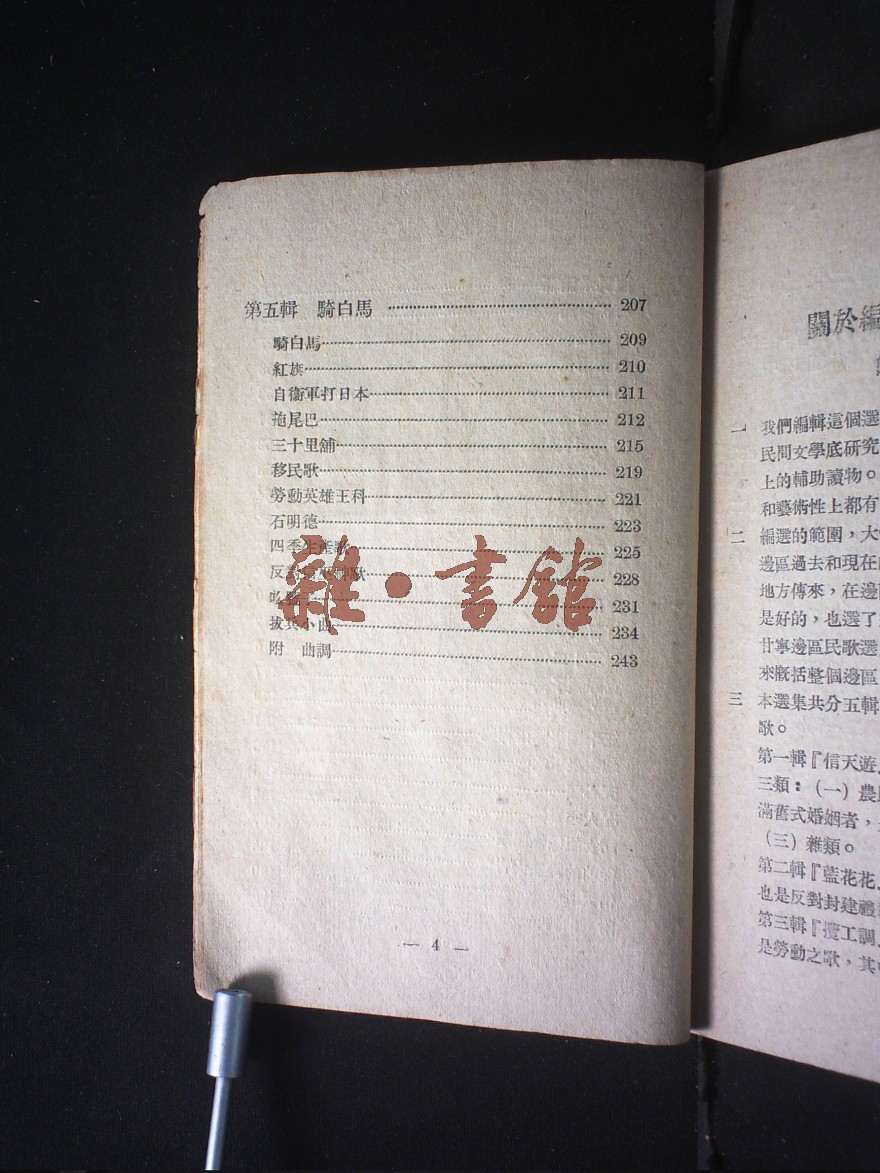 第五輯 騎白馬 207
騎白馬 209
紅旗 210
自衞軍打日本 211
拖尾巴 212
三十里舖 215
移民歌 219
勞動英雄王科 221
石明德 223
四季生產歌 225
反對 歌 228
231
拔兵小曲 234
附 曲調 243
— 4 —
雜·書館
關於編
一 我們編輯這個選
民間文學底研究
上的輔助讀物。
和藝術性上都有
二 編選的範圍,大
邊區過去和現在
地方傳來,在邊
是好的,也選了
甘寧邊區民歌選
來槪括整個邊區
三 本選集共分五輯
歌。
第一輯『信天遊』
三類:(一)農
滿舊式婚姻者,
(三)雜類。
第二輯『藍花花』
也是反對封建禮
第三輯『攬工調』
是勞動之歌,其